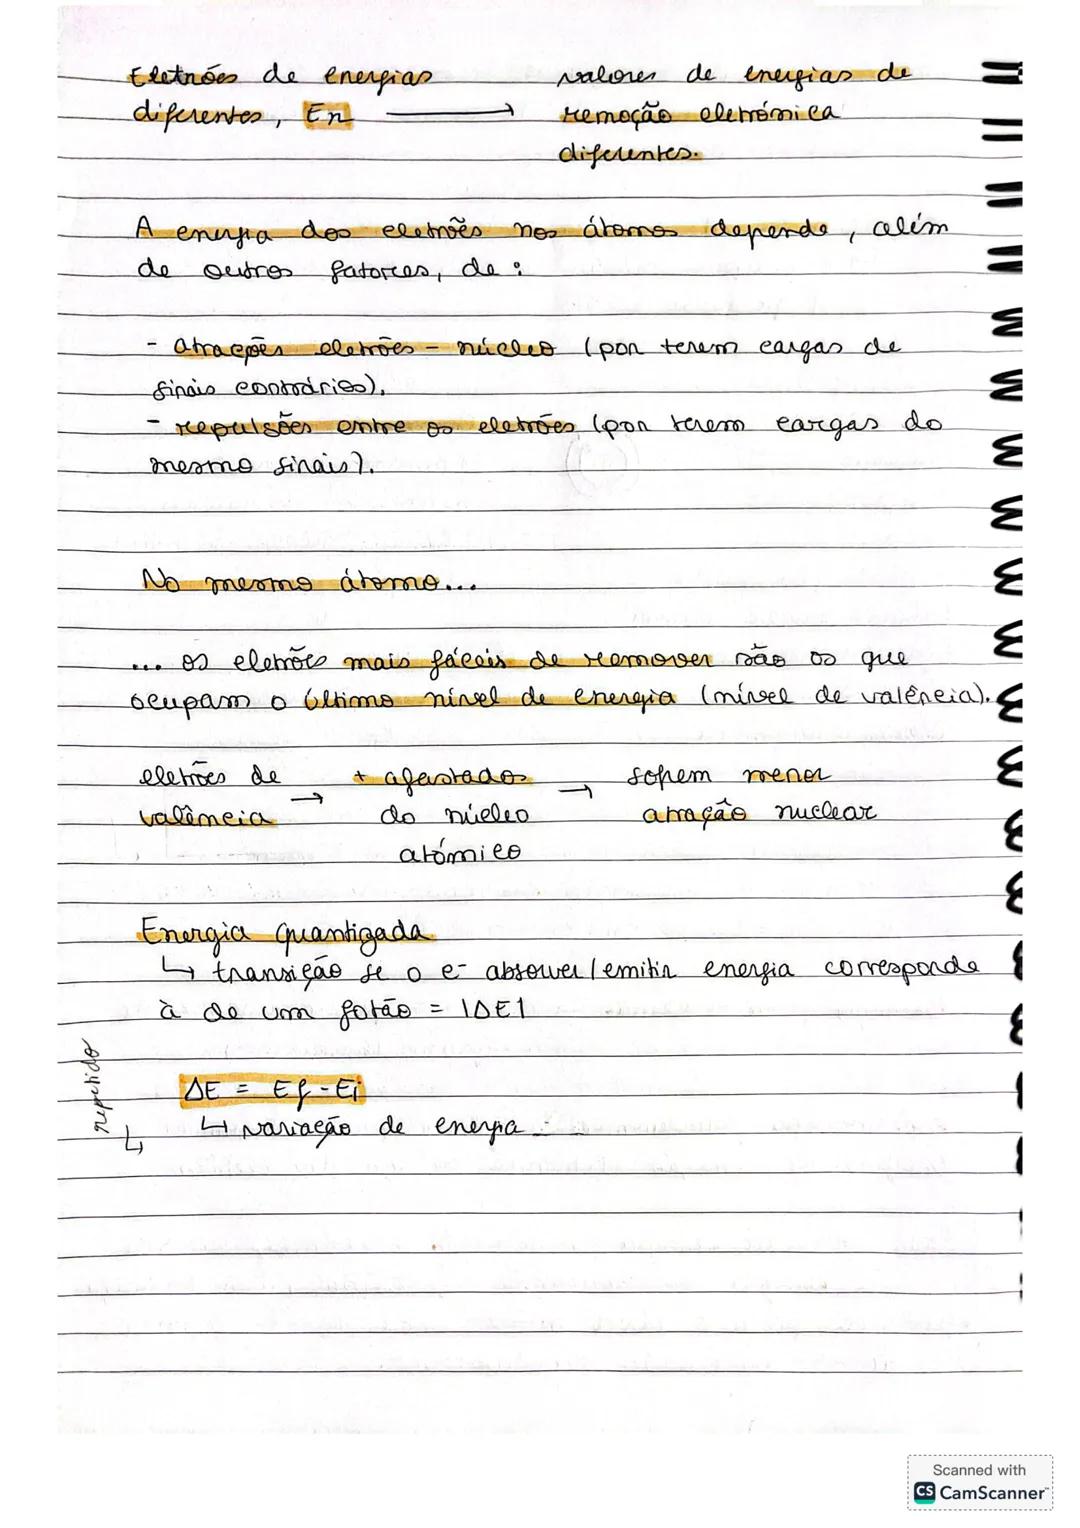 Eletrões de energias
diferentes, En ⟶
valores de energias de
remoção eletrónica
diferentes.
A energia dos eletrões nos átomos depende, além
de outros fatores, de:
- atrações eletrões - núcleo (por terem cargas de
sinais contrários).
- repulsões entre os eletrões (por terem cargas do
mesmo sinais).
No mesmo átomo...
... os eletrões mais fáceis de remover são os que
ocupam o último nível de energia (nível de valência).
eletrões de
valência →
+ afastados
do núcleo
atómico →
sofrem menor
atração nuclear
Energia quantizada
↳ transição se o e- absorver/emitir energia corresponde
à de um fotão = |ΔE|
repetido
↳
ΔE = Ef - Ei
↳ variação de energia
Scanned with
CS CamScanner